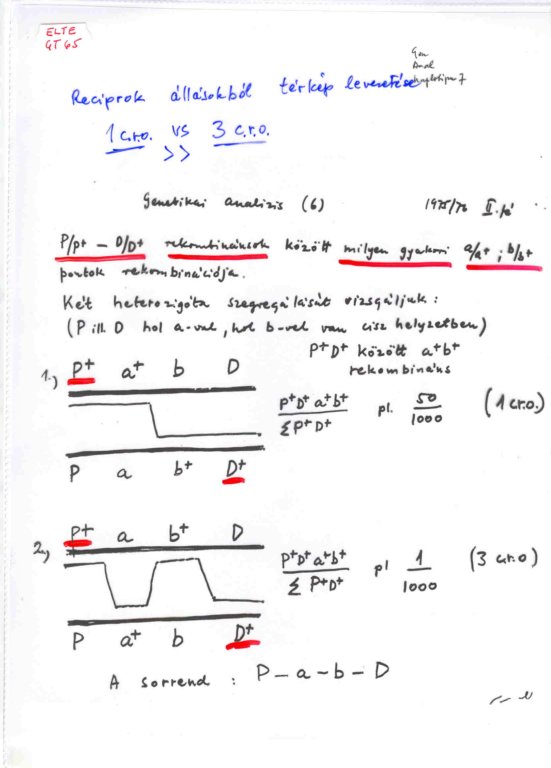 ELTE
GT 65
Gen
Anal
haplotípus 7
Reciprok állásokból térkép levezetése
1 c.r.o. vs 3 c.r.o.
>>
Genetikai analízis (6) 1975/76 II. fé
P/p+ – D/D+ rekombinánsok között milyen gyakori a/a+ ; b/b+
pontok rekombinációja.
Két heterozigóta szegregálását vizsgáljuk :
(P ill. D hol a-val, hol b-vel van cisz helyzetben)
P+D+ között a+b+
rekombináns
1.) P+ a+ b D
P+D+ a+b+ / ΣP+D+ pl. 50/1000 (1 c.r.o.)
P a b+ D+
2.) P+ a b+ D
P+D+ a+b+ / Σ P+D+ pl 1/1000 (3 c.r.o)
P a+ b D+
A sorrend : P – a – b – D